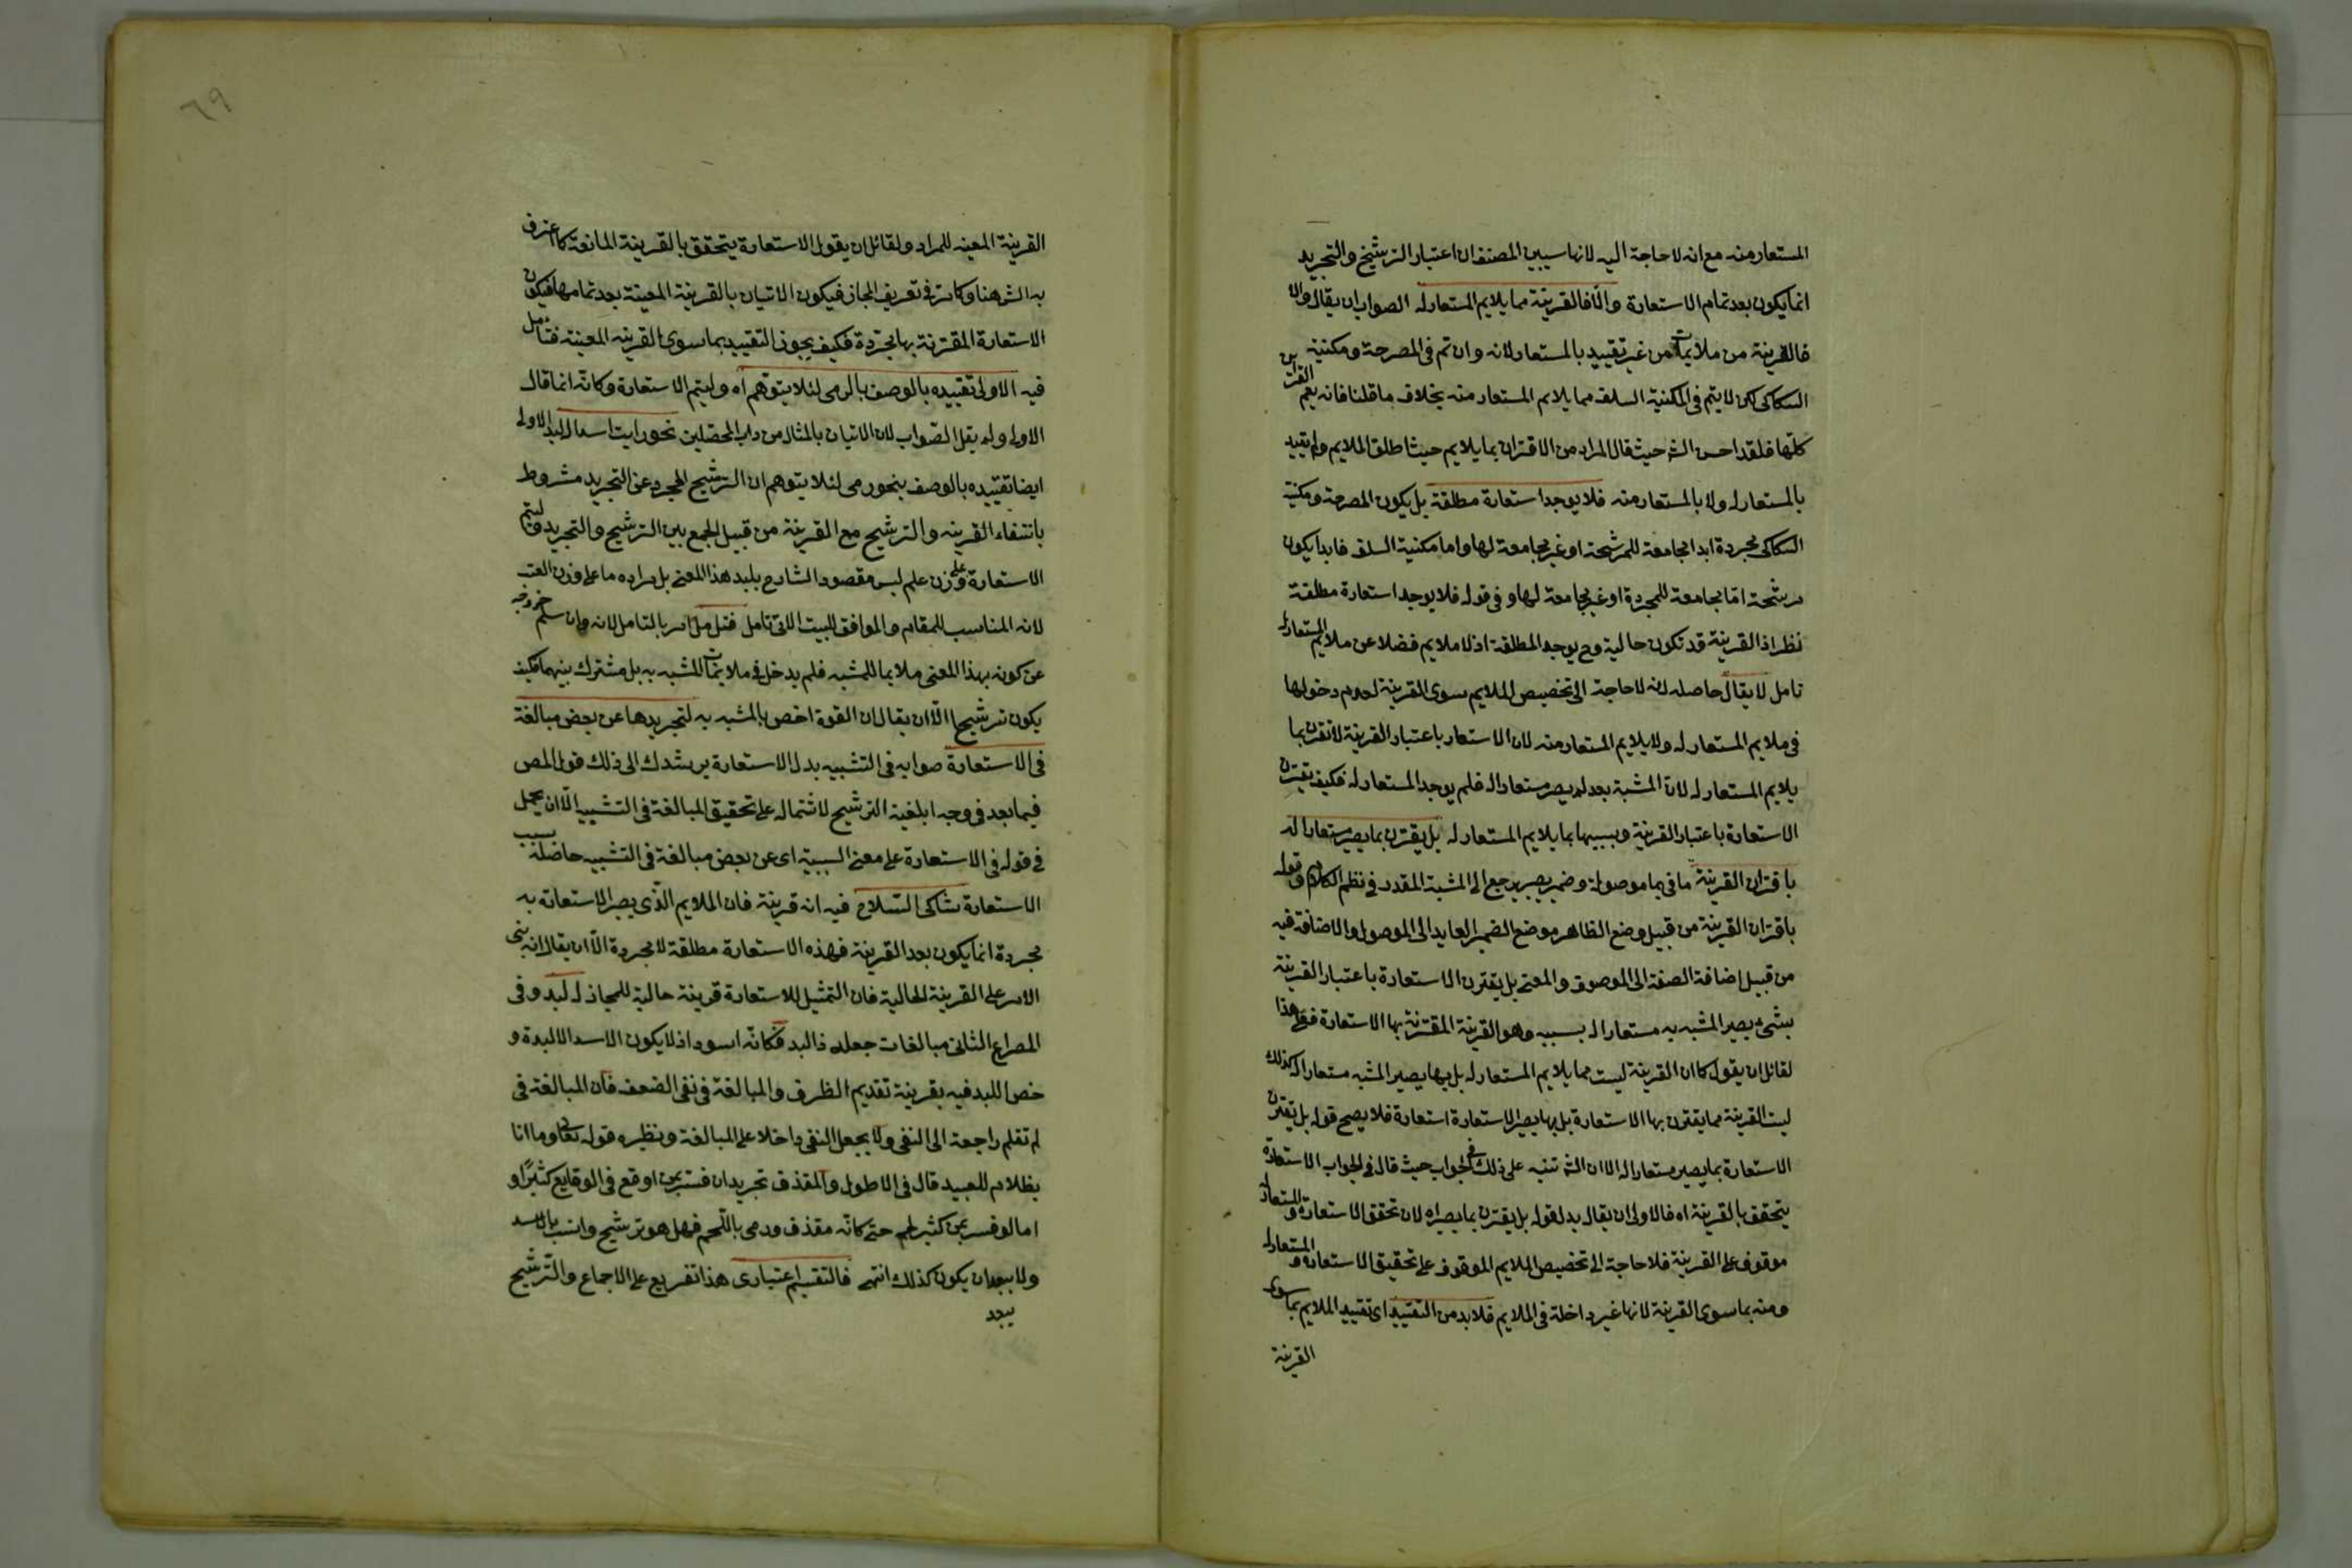 المستعار منه مع انه لا حاجة اليه لانها سيبين المصنف ان اعتبار الترشيح والتجريد
انما يكون بعد تمام الاستعارة والّا فالقرينة مما يلايم المستعار له الصواب ان يقال والا
فالقرينة من ملايمات من غير تقييد بالمستعار لانه وان تم فى المصرحة ومكنية
السكاكى لكن لا يتم فى المكنية السلف مما يلايم المستعار منه بخلاف ما قلنا فانه يعم القراين
كلّها فلقد احسن الش حيث قال المراد من الاقتران بما يلايم حيث اطلق الملايم ولم يقيد
بالمستعار له ولا بالمستعار منه فلا يوجد استعارة مطلقة بل يكون المصرحة ومكنية
السكاكى مجردة ابدا مجامعة للمرشحة او غير مجامعة لها واما مكنية السلف فابدا يكون
مرشحة امّا مجامعة للمجردة او غير مجامعة لها وفى قوله فلا يوجد استعارة مطلقة
نظر اذ القرينة قد تكون حالية وح يوجد المطلقة اذ لا ملايم فضلا عن ملايم المستعار له
تامل لا يقال حاصله انه لا حاجة الى تخصيص الملايم بسوى القرينة لعدم دخولها
فى ملايم المستعار له ولا يلايم المستعار منه لان الاستعار باعتبار القرينة لا تقترن بما
يلايم المستعار له لانّ المشبّه بعد لم يصر مستعارا له فلم يوجد المستعار له فكيف تقترن
الاستعارة باعتبار القرينة وبسببها بما يلايم المستعار له بل يقترن بما يصير مستعارا له
باقتران القرينة ما فى بما موصولة وضمير يصير يرجع الى المشبّه المقدر فى نظم الكلام وقوله
باقتران القرينة من قبيل وضع الظاهر موضع الضمير العايد الى الموصول والاضافة فيه
من قبيل اضافة الصفة الى الموصوف والمعنى بل يقترن الاستعارة باعتبار القرينة
بشئ يصير المشبه به مستعارا له بسببه وهو القرينة المقترنة بها الاستعارة فعلى هذا
لقائل ان يقول كما ان القرينة ليست مما يلايم المستعار له بل بها يصير المشبه مستعارا له كذلك
ليست القرينة مما يقترن بها الاستعارة بل بها يصير الاستعارة استعارة فلا يصح قوله بل تقترن
الاستعارة بما يصير مستعارا له الا ان الش تنبه على ذلك فى الجواب حيث قال فى الجواب الاستعارة
يتحقق بالقرينة اه فالاولى ان يقال بدل قوله بل يقترن بما يصير اه لان تحقق الاستعارة والمستعار له
موقوف على القرينة فلا حاجة الى تخصيص الملايم الموقوف على تحقيق الاستعارة والمستعار له
ومنه بما سوى القرينة لانها غير داخلة فى الملايم فلابد من التقييد اى تقييد الملايم بما سوى
القرينة
القرينة المعينه للمراد ولقائل ان يقول الاستعارة يتحقق بالقرينة المانعة كما اعترف
به الش هنا وكما مر فى تعريف المجاز فيكون الاتيان بالقرينة المعينة بعد تمامها فيكون
الاستعارة المقترنة بها مجردة فكيف يجوز التقييد بما سوى القرينه المعينة فتامل
فيه الاولى تقييده بالوصف بالرمى لئلا يتوهم اه وليتم الاستعارة وكانّه انما قال
الاولى ولم يقل الصّواب لان الاتيان بالمثال من داب المحصّلين نحو رايت اسدا له لبد الاولى
ايضا تقييده بالوصف بنحو رمى لئلا يتوهم ان الترشيح المجرد عن التجريد مشروط
بانتفاء القرينه والترشيح مع القرينة من قبيل الجمع بين الترشيح والتجريد وليتم
الاستعارة وعلى وزن علم ليس مقصود الشارح بلبد هذا المعنى بل مراده ما على وزن العنب
لانه المناسب للمقام والموافق للبيت الاتى تامل فتامل امر بالتامل لانه وان سلم خروجه
عن كونه بهذا المعنى ملايما للمشبه فلم يدخل فى ملايمات المشبه به بل مشترك بينهما فكيف
يكون ترشيحا الّا ان يقال ان القوة اخص بالمشبه به لتجريدها عن بعض مبالغة
فى الاستعارة صوابه فى التشبيه بدل الاستعارة يرشدك الى ذلك قول المص
فيما بعد فى وجه ابلغية الترشيح لاشتماله على تحقيق المبالغة فى التشبيه الّا ان يحمل
فى قوله فى الاستعارة على معنى السببيّة اى عن بعض مبالغة فى التشبيه حاصلة بسبب
الاستعارة شاكى السّلاح فيه انه قرينة فان الملايم الّذى يصير الاستعارة به
مجردة انما يكون بعد القرينة فهذه الاستعارة مطلقة لا مجردة الّا ان يقال انه بنى
الامر على القرينة الحالية فان التمثيل للاستعارة قرينة حالية للمجاز له لبد وفى
المصراع الثانى مبالغات جعله ذا لبد فكانّه اسود اذ لا يكون الاسد الا لبدة و
خص اللبد فيه بقرينة تقديم الظرف والمبالغة فى نفى الضعف فان المبالغة فى
لم تقلم راجعة الى النفى ولا يجعل النفى داخلا على المبالغة ونظيره قوله تعالى وما انا
بظلام للعبيد قال فى الاطول والمقذف تجريد ان فستر بمن اوقع فى الوقايع كثيرًا و
اما لو فسر بمن كثير لحم حتى كانّه مقذف ورمى باللّحم فهل هو ترشيح وانسب بالاسد
ولا يبعد ان يكون كذلك انتهى فالتقسيم اعتبارى هذا تفريع على الاجماع والترشيح
يبعد
٦٩